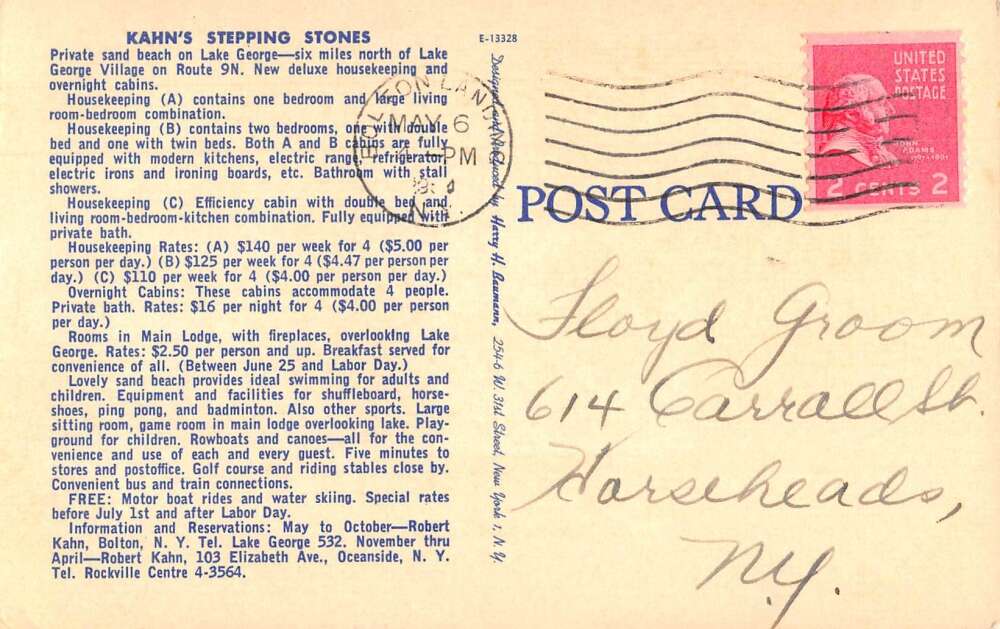 KAHN'S STEPPING STONES
Private sand beach on Lake George—six miles north of Lake
George Village on Route 9N. New deluxe housekeeping and
overnight cabins.
Housekeeping (A) contains one bedroom and large living
room-bedroom combination.
Housekeeping (B) contains two bedrooms, one with double
bed and one with twin beds. Both A and B cabins are fully
equipped with modern kitchens, electric range, refrigerator,
electric irons and ironing boards, etc. Bathroom with stall
showers.
Housekeeping (C) Efficiency cabin with double bed and
living room-bedroom-kitchen combination. Fully equipped with
private bath.
Housekeeping Rates: (A) $140 per week for 4 ($5.00 per
person per day.) (B) $125 per week for 4 ($4.47 per person per
day.) (C) $110 per week for 4 ($4.00 per person per day.)
Overnight Cabins: These cabins accommodate 4 people.
Private bath. Rates: $16 per night for 4 ($4.00 per person
per day.)
Rooms in Main Lodge, with fireplaces, overlooking Lake
George. Rates: $2.50 per person and up. Breakfast served for
convenience of all. (Between June 25 and Labor Day.)
Lovely sand beach provides ideal swimming for adults and
children. Equipment and facilities for shuffleboard, horse-
shoes, ping pong, and badminton. Also other sports. Large
sitting room, game room in main lodge overlooking lake. Play-
ground for children. Rowboats and canoes—all for the con-
venience and use of each and every guest. Five minutes to
stores and postoffice. Golf course and riding stables close by.
Convenient bus and train connections.
FREE: Motor boat rides and water skiing. Special rates
before July 1st and after Labor Day.
Information and Reservations: May to October—Robert
Kahn, Bolton, N. Y. Tel. Lake George 532. November thru
April—Robert Kahn, 103 Elizabeth Ave., Oceanside, N. Y.
Tel. Rockville Centre 4-3564.
E-13328
Designed and Produced by Harry H. Baumann, 254-6 W. 31st Street, New York 1, N. Y.
BOLTON LANDING
MAY 6
PM
N.Y.
UNITED
STATES
POSTAGE
JOHN
ADAMS
2 CENTS 2
POST CARD
Floyd Groom
614 Carrall St.
Horseheads,
N.Y.